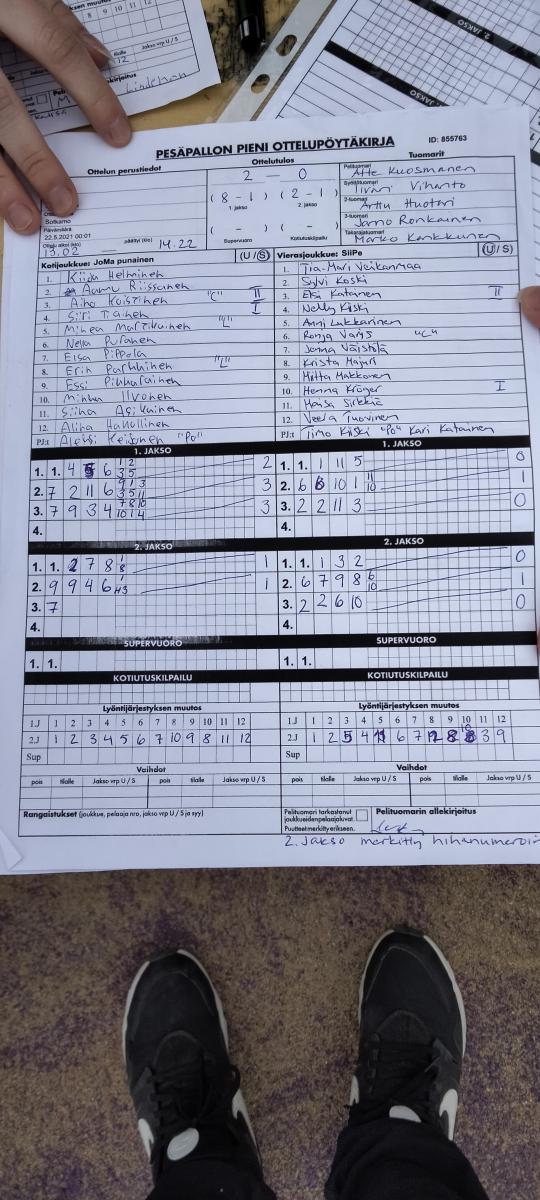 PESÄPALLON PIENI OTTELUPÖYTÄKIRJA
ID: 855763
Ottelun perustiedot
Ottelutulos
Tuomarit
2 - 0
( 8 - 1 ) ( 2 - 1 )
1. jakso 2. jakso
( - ) ( - )
Supervuoro Kotiutuskilpailu
Pelituomari
Atte Kuosmanen
Syöttötuomari
Iivari Vihanto
2-tuomari
Arttu Huotari
3-tuomari
Jarno Ronkainen
Takarajatuomari
Marko Karkkunen
Sotkamo
Päivämäärä
22.5.2021 00:01
Ottelu alkoi (klo)
13.02
päättyi (klo) 14.22
Kotijoukkue: JoMa punainen (U/S)
1. Kiija Helminen
2. Aamu Riissanen
3. Aino Koistinen "C" II
4. Siri Tiainen I
5. Minea Martikainen "L"
6. Nella Puranen
7. Elsa Pippola
8. Erin Parkkinen "L"
9. Essi Pikkarainen
10. Minka Ilvonen
11. Siina Asikainen
12. Alina Hakollinen
PJ:t Aleksi Keijonen "Po"
Vierasjoukkue: SiiPe (U/S)
1. Tia-Mari Veikanmaa
2. Sylvi Koski
3. Elsi Katainen II
4. Nelly Kiiski
5. Anni Lukkarinen
6. Ronja Varis "L"
7. Jonna Väistölä
8. Krista Majuri
9. Miitta Makkonen
10. Henna Kröger I
11. Maisa Sirkkiä
12. Veera Tuovinen
PJ:t Timo Kiiski "Po" Kari Katainen
1. JAKSO
1. 1. 4 5 6 3 5 1 2 2
2. 7 2 11 6 9 1 3 3 5 11 3
3. 7 9 3 4 7 8 10 10 1 4 3
4.
1. JAKSO
1. 1. 1 11 5 0
2. 6 8 10 1 11 10 1
3. 2 2 11 3 0
4.
2. JAKSO
1. 1. 2 7 8 1
2. 9 9 4 6 1
3. 7
4.
2. JAKSO
1. 1. 1 3 2 0
2. 6 7 9 8 6 10 1
3. 2 2 6 10 0
4.
SUPERVUORO
1. 1.
SUPERVUORO
1. 1.
KOTIUTUSKILPAILU
KOTIUTUSKILPAILU
Lyöntijärjestyksen muutos
1.J 1 2 3 4 5 6 7 8 9 10 11 12
2.J 1 2 3 4 5 6 7 10 9 8 11 12
Sup
Lyöntijärjestyksen muutos
1.J 1 2 3 4 5 6 7 8 9 10 11 12
2.J 1 2 5 4 11 6 7 12 8 10 3 9
Sup
Vaihdot
pois tilalle Jakso vrp U / S pois tilalle Jakso vrp U / S
Vaihdot
pois tilalle Jakso vrp U / S pois tilalle Jakso vrp U / S
Rangaistukset (joukkue, pelaaja nro, jakso vrp U / S ja syy)
Pelituomari tarkastanut
joukkueidenpelaajaluvat.
Puutteet merkitty erikseen.
Pelituomarin allekirjoitus
2. jakso merkitty hihanumeroin